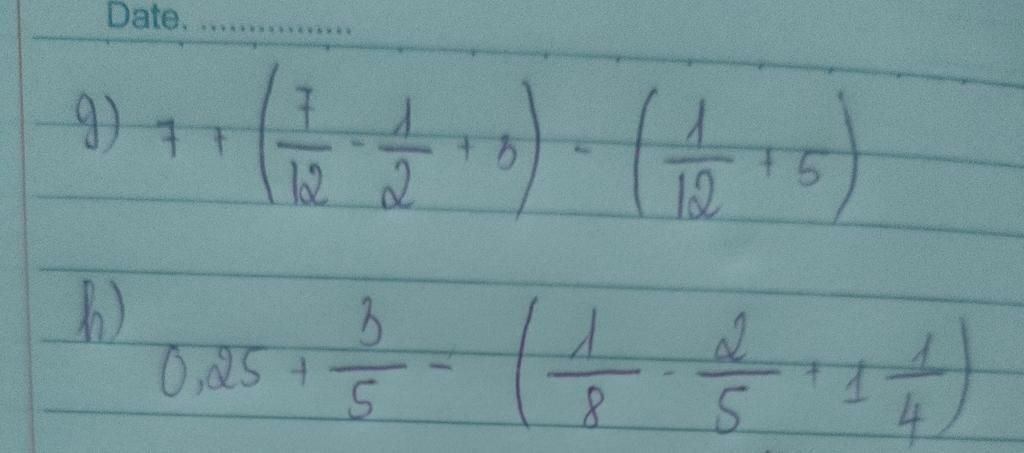 Date. ...............
g) 7 + (7/12 - 1/2 + 3) - (1/12 + 5)
h) 0,25 + 3/5 - (1/8 - 2/5 + 1 1/4)